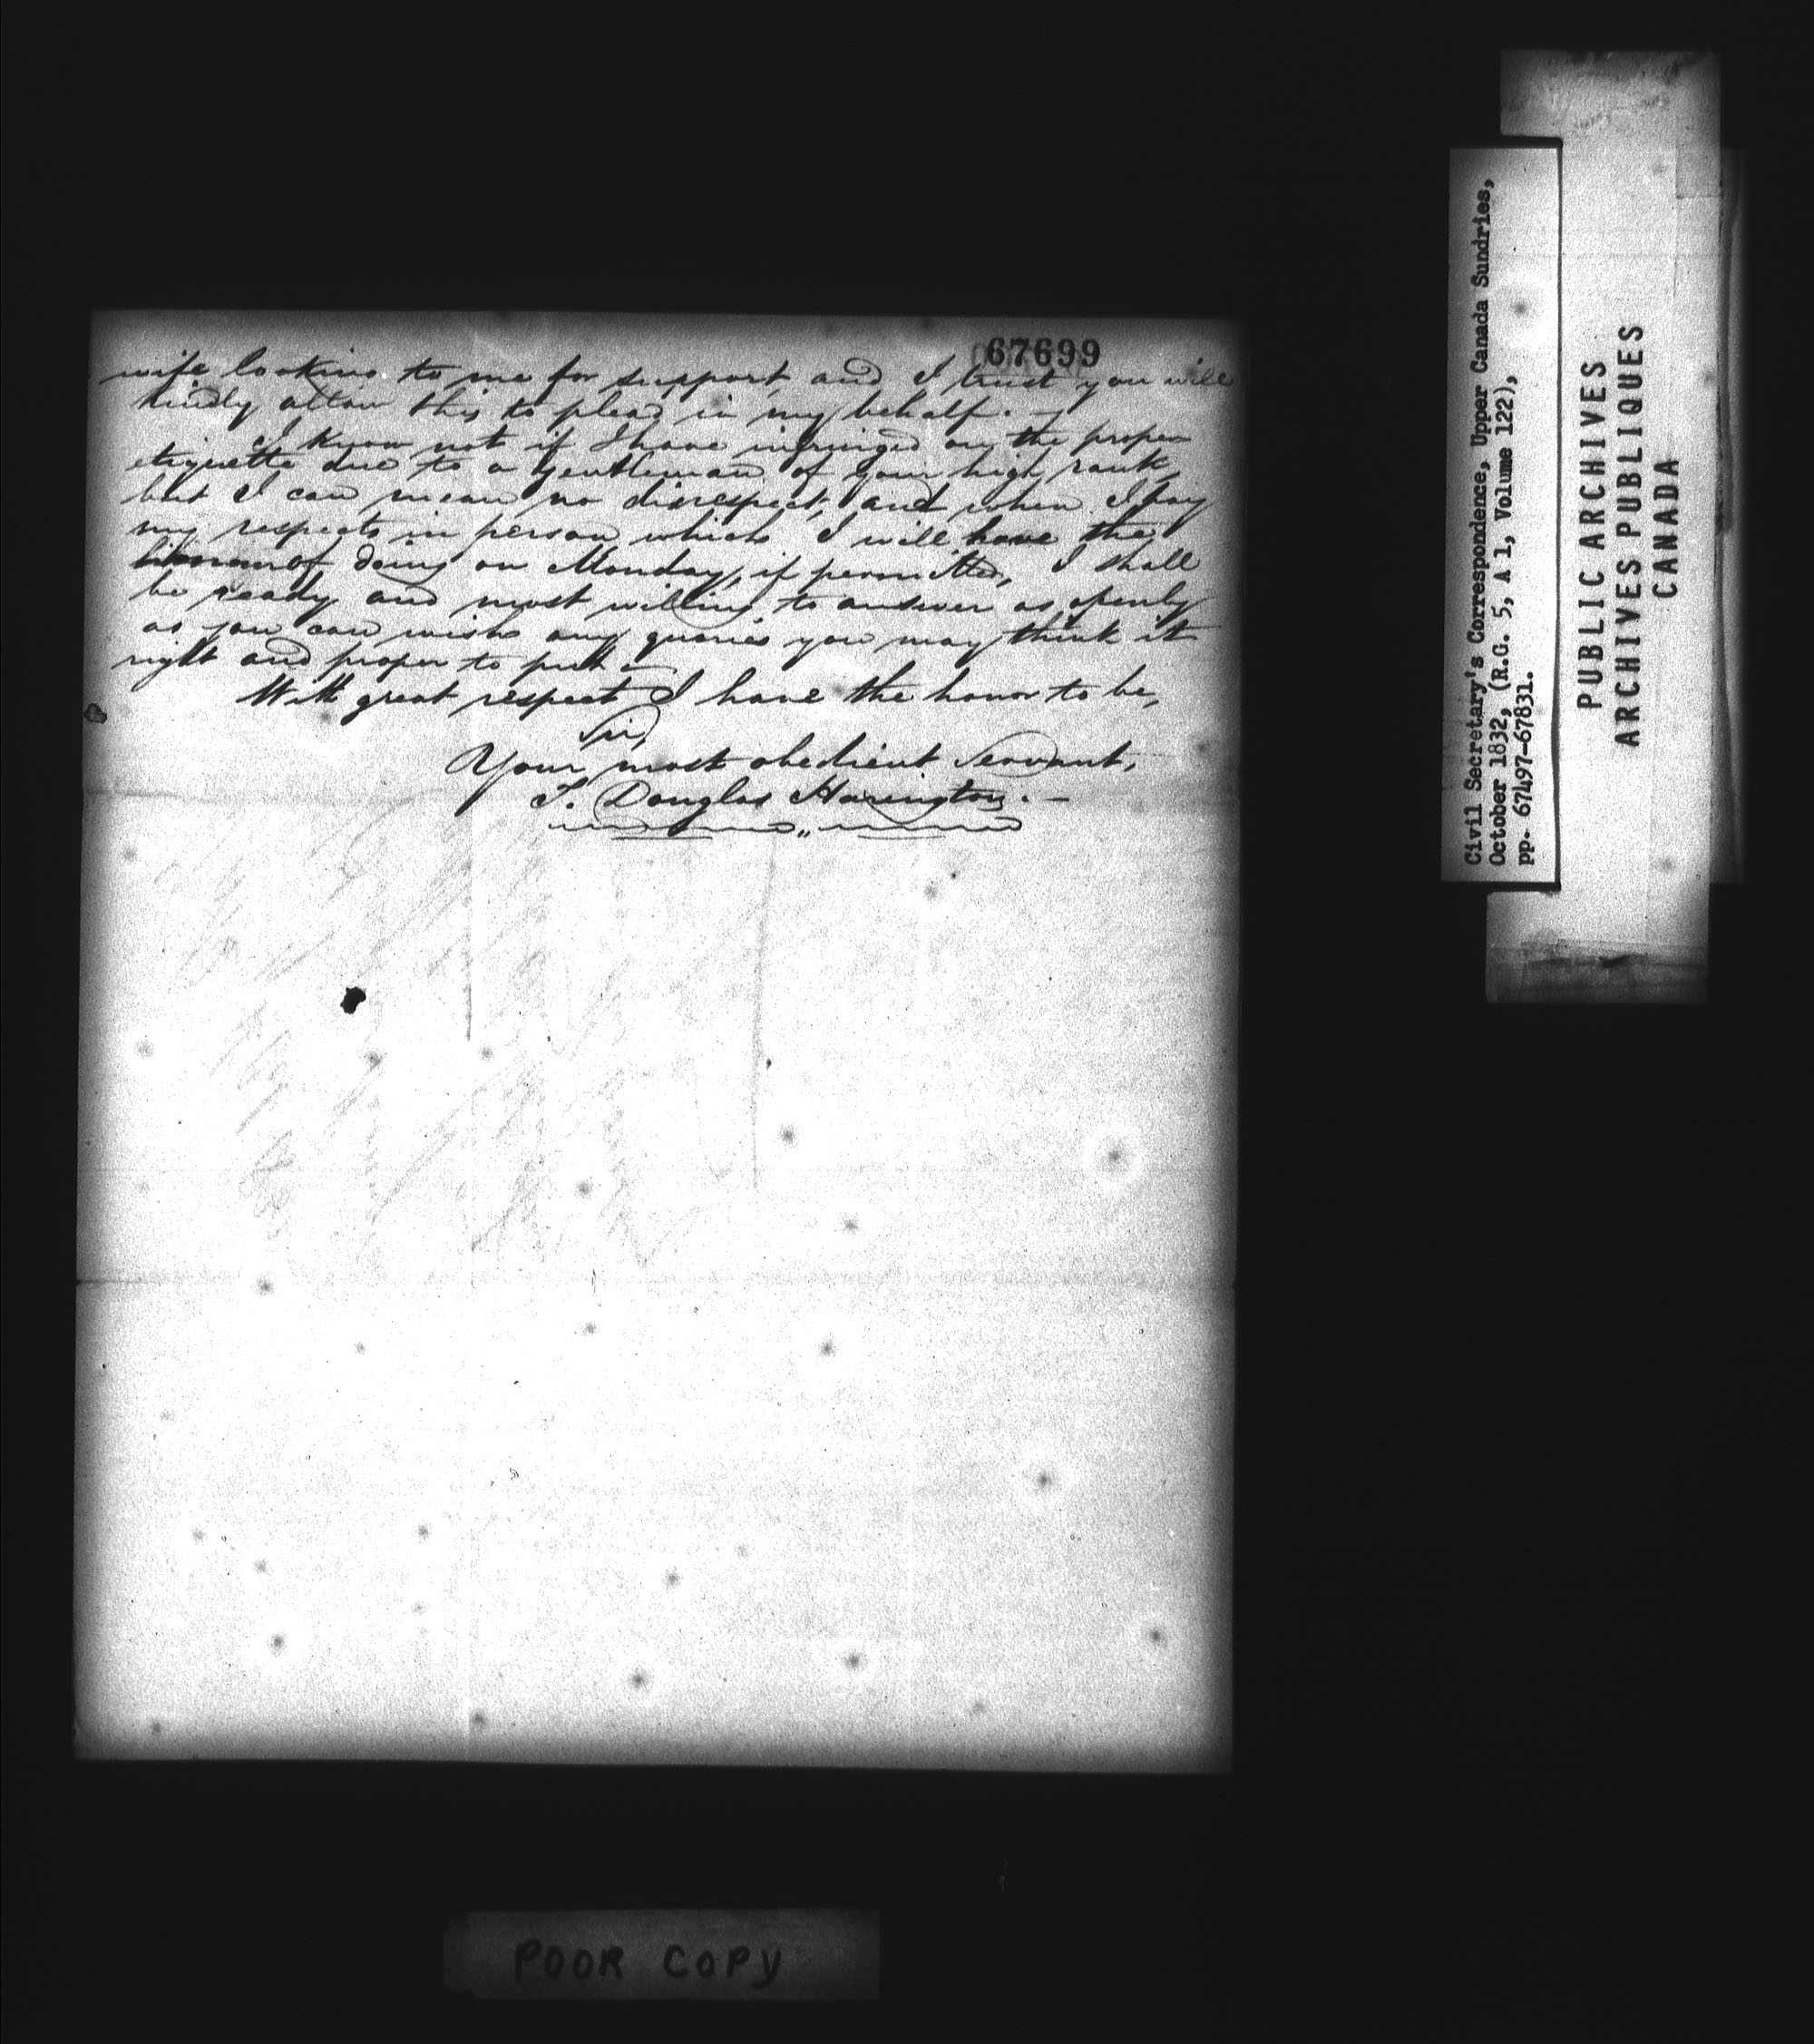 67699
wife looking to me for support, and I trust you will
kindly allow this to plead in my behalf. —
I know not if I have infringed on the proper
etiquette due to a gentleman of your high rank,
but I can mean no disrespect, and when I pay
my respects in person which I will have the
honour of doing on Monday, if permitted, I shall
be ready and most willing to answer as openly
as you can wish any queries you may think it
right and proper to put. —
With great respect I have the honor to be,
Sir,
Your most obedient Servant,
T. Douglas Harington. —
Civil Secretary's Correspondence, Upper Canada Sundries,
October 1832, (R.G. 5, A 1, Volume 122),
pp. 67497-67831.
PUBLIC ARCHIVES
ARCHIVES PUBLIQUES
CANADA
POOR COPY